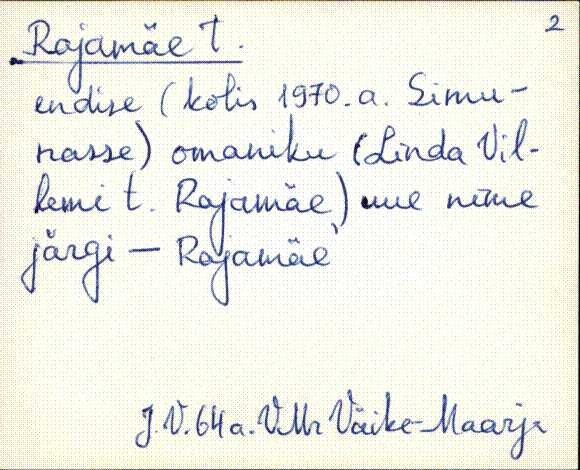 2
Rajamäe t.
endise (kolis 1970. a. Simu-
nasse) omaniku (Linda Vil-
lemi t. Rajamäe) uue nime
järgi — Rajamäe
J. V. 64 a. VMr Väike-Maarja